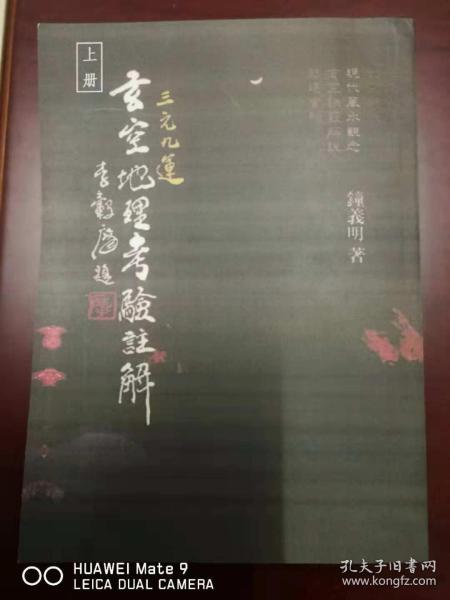 上册
三元九運
玄空地理考驗註解
李
題
現代風水觀念
鐘義明 著
HUAWEI Mate 9
LEICA DUAL CAMERA
孔夫子旧书网
www.kongfz.com